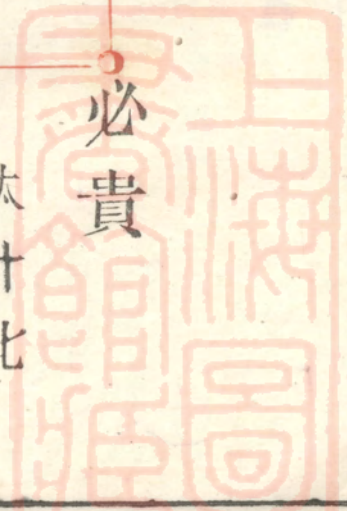 必貴
上海圖
書館藏